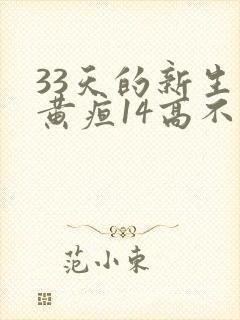 33天的新生
黄疸14高不
范小东